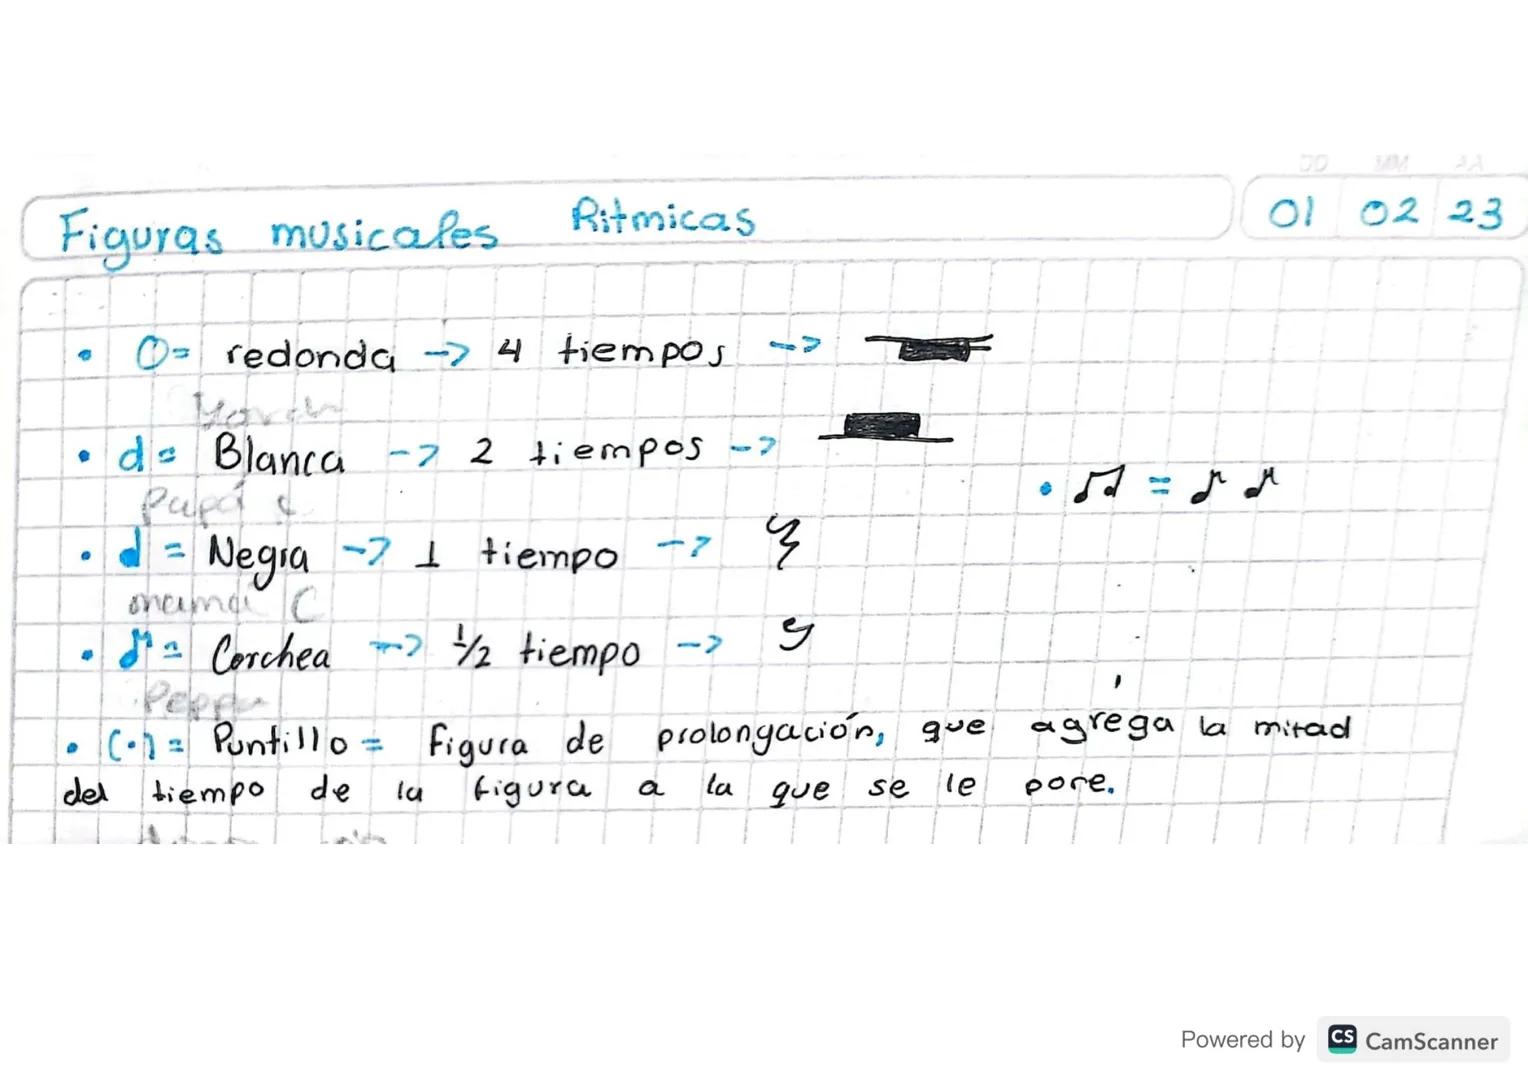 DD MM AA
Figuras musicales Ritmicas 01 02 23
• O= redonda -> 4 tiempos ->
• d= Blanca -> 2 tiempos ->
Papá
• ♫ = ♪ ♪
• ♩ = Negra -> 1 tiempo -> 𝄽
mamá C
• ♪= Corchea -> ½ tiempo ->
Peppa
• (•)= Puntillo = Figura de prolongación, que agrega la mitad
del tiempo de la figura a la que se le pone.
Powered by CS CamScanner